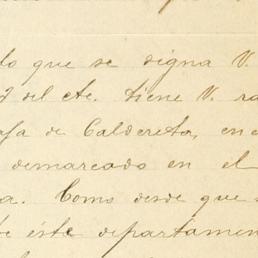 lo que se digna V.
del cte. tiene V. ra
de Caldereta, en e
demarcado en el
Como desde que s
éste departamen